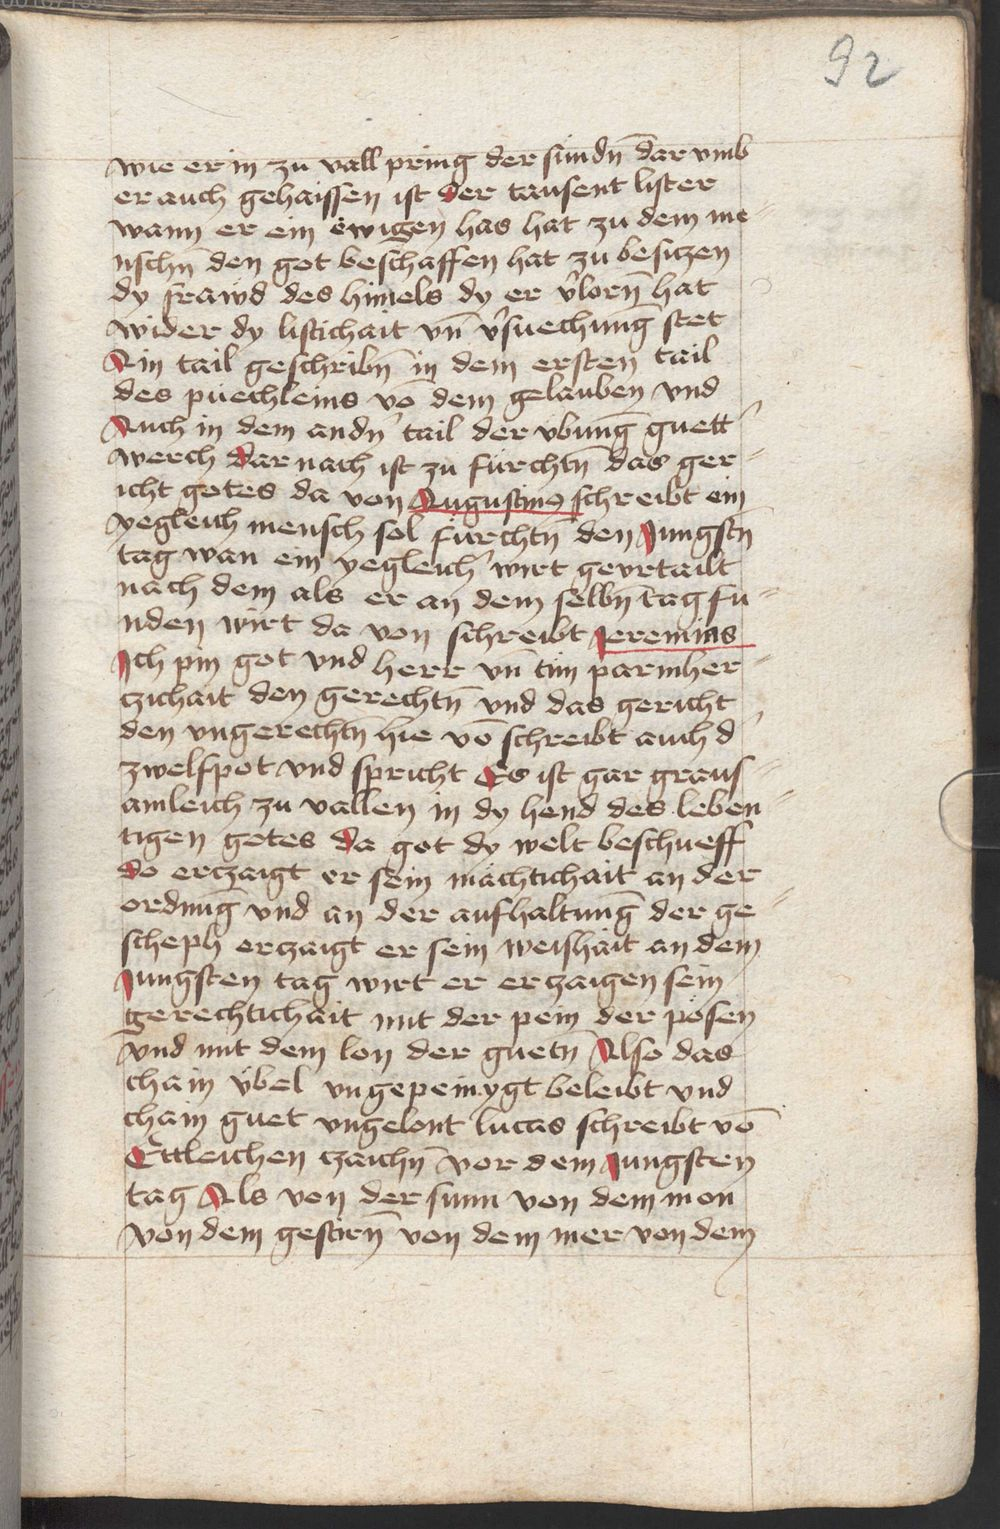 92
wie er in zu vall pring der sündn̄ dar vmb
er auch gehaissen ist der tausent lister
wann er ein ewigen has hat zu dem me
nschn̄ den got beschaffen hat zu besiczen
dy frawd des himels dy er v̓lorn̄ hat
wider dy listichait vn̄ v̓suechung stet
Ain tail geschribn̄ in dem ersten tail
des puechleins vō dem gelauben vnd
Auch in dem andn̓ tail der vbung guett̓
werch Dar nach ist zu fürchtn̄ das ger
icht gotes da von Augustinꝯ schreibt ein
yegleich mensch sol fürchtn̄ den Jungstn̄
tag wan ein yegleich̓ wirt gevrtailt
nach dem als er an dem selbn̄ tag fu
nden wirt da von schreibt Jeremias
Ich pin got vnd herr vn̄ tun parmher
czichait den gerechtn̄ vnd das gericht
den vngerechtn̄ hie vō schreibt auch d̓
zwelfpot vnd spricht Es ist gar graus
amleich zu vallen in dy hend des leben
tigen gotes Da got dy welt beschueff
Do erczaigt er sein mächtichait an der
ordnung vnd an der aufhaltung der ge
scheph erczaigt er sein weishait an dem
Jungsten tag wirt er erczaigen sein
gerechtichait mit der pein der pösen
vnd mit dem lon der guetn̄ Also das
chain übel vngepeinygt beleibt vnd
chain guet vngelont lucas schreibt vō
Ettleichen czaichn̄ vor dem Jungsten
tag Als von der sunn von dem mon
von dem gestirn̄ von dem mer von dem